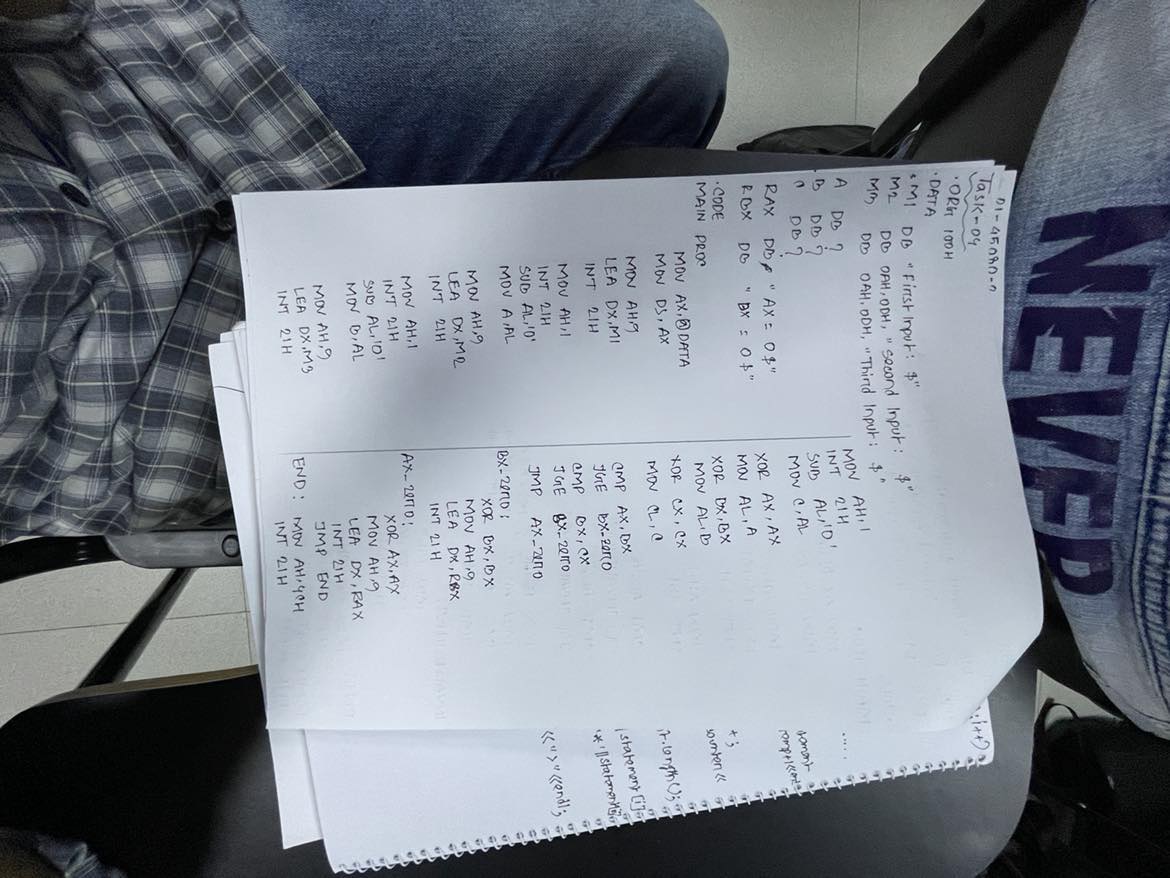 NEVER
Task-04
.ORG 100H
.DATA
M1 DB "First Input: $"
M2 DB 0AH,0DH, "Second Input: $"
M3 DB 0AH,0DH, "Third Input: $"
A DB ?
B DB ?
C DB ?
RAX DB "AX = 0$"
RBX DB "BX = 0$"
.CODE
MAIN PROC
MOV AX,@DATA
MOV DS,AX
MOV AH,9
LEA DX,M1
INT 21H
MOV AH,1
INT 21H
SUB AL,'0'
MOV A,AL
MOV AH,9
LEA DX,M2
INT 21H
MOV AH,1
INT 21H
SUB AL,'0'
MOV B,AL
MOV AH,9
LEA DX,M3
INT 21H
MOV AH,1
INT 21H
SUB AL,'0'
MOV C,AL
XOR AX,AX
MOV AL,A
XOR BX,BX
MOV AL,B
XOR CX,CX
MOV CL,C
CMP AX,BX
JGE BX-zero
CMP BX,CX
JGE BX-zero
JMP AX-zero
BX-zero:
XOR BX,BX
MOV AH,9
LEA DX,RBX
INT 21H
AX-zero:
XOR AX,AX
MOV AH,9
LEA DX,RAX
INT 21H
JMP END
END: MOV AH,4CH
INT 21H
;i++)
it.length();
statement[i]
<<">"<<endl;